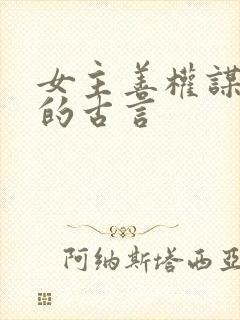 女主善權謀
的古言
阿纳斯塔西亚